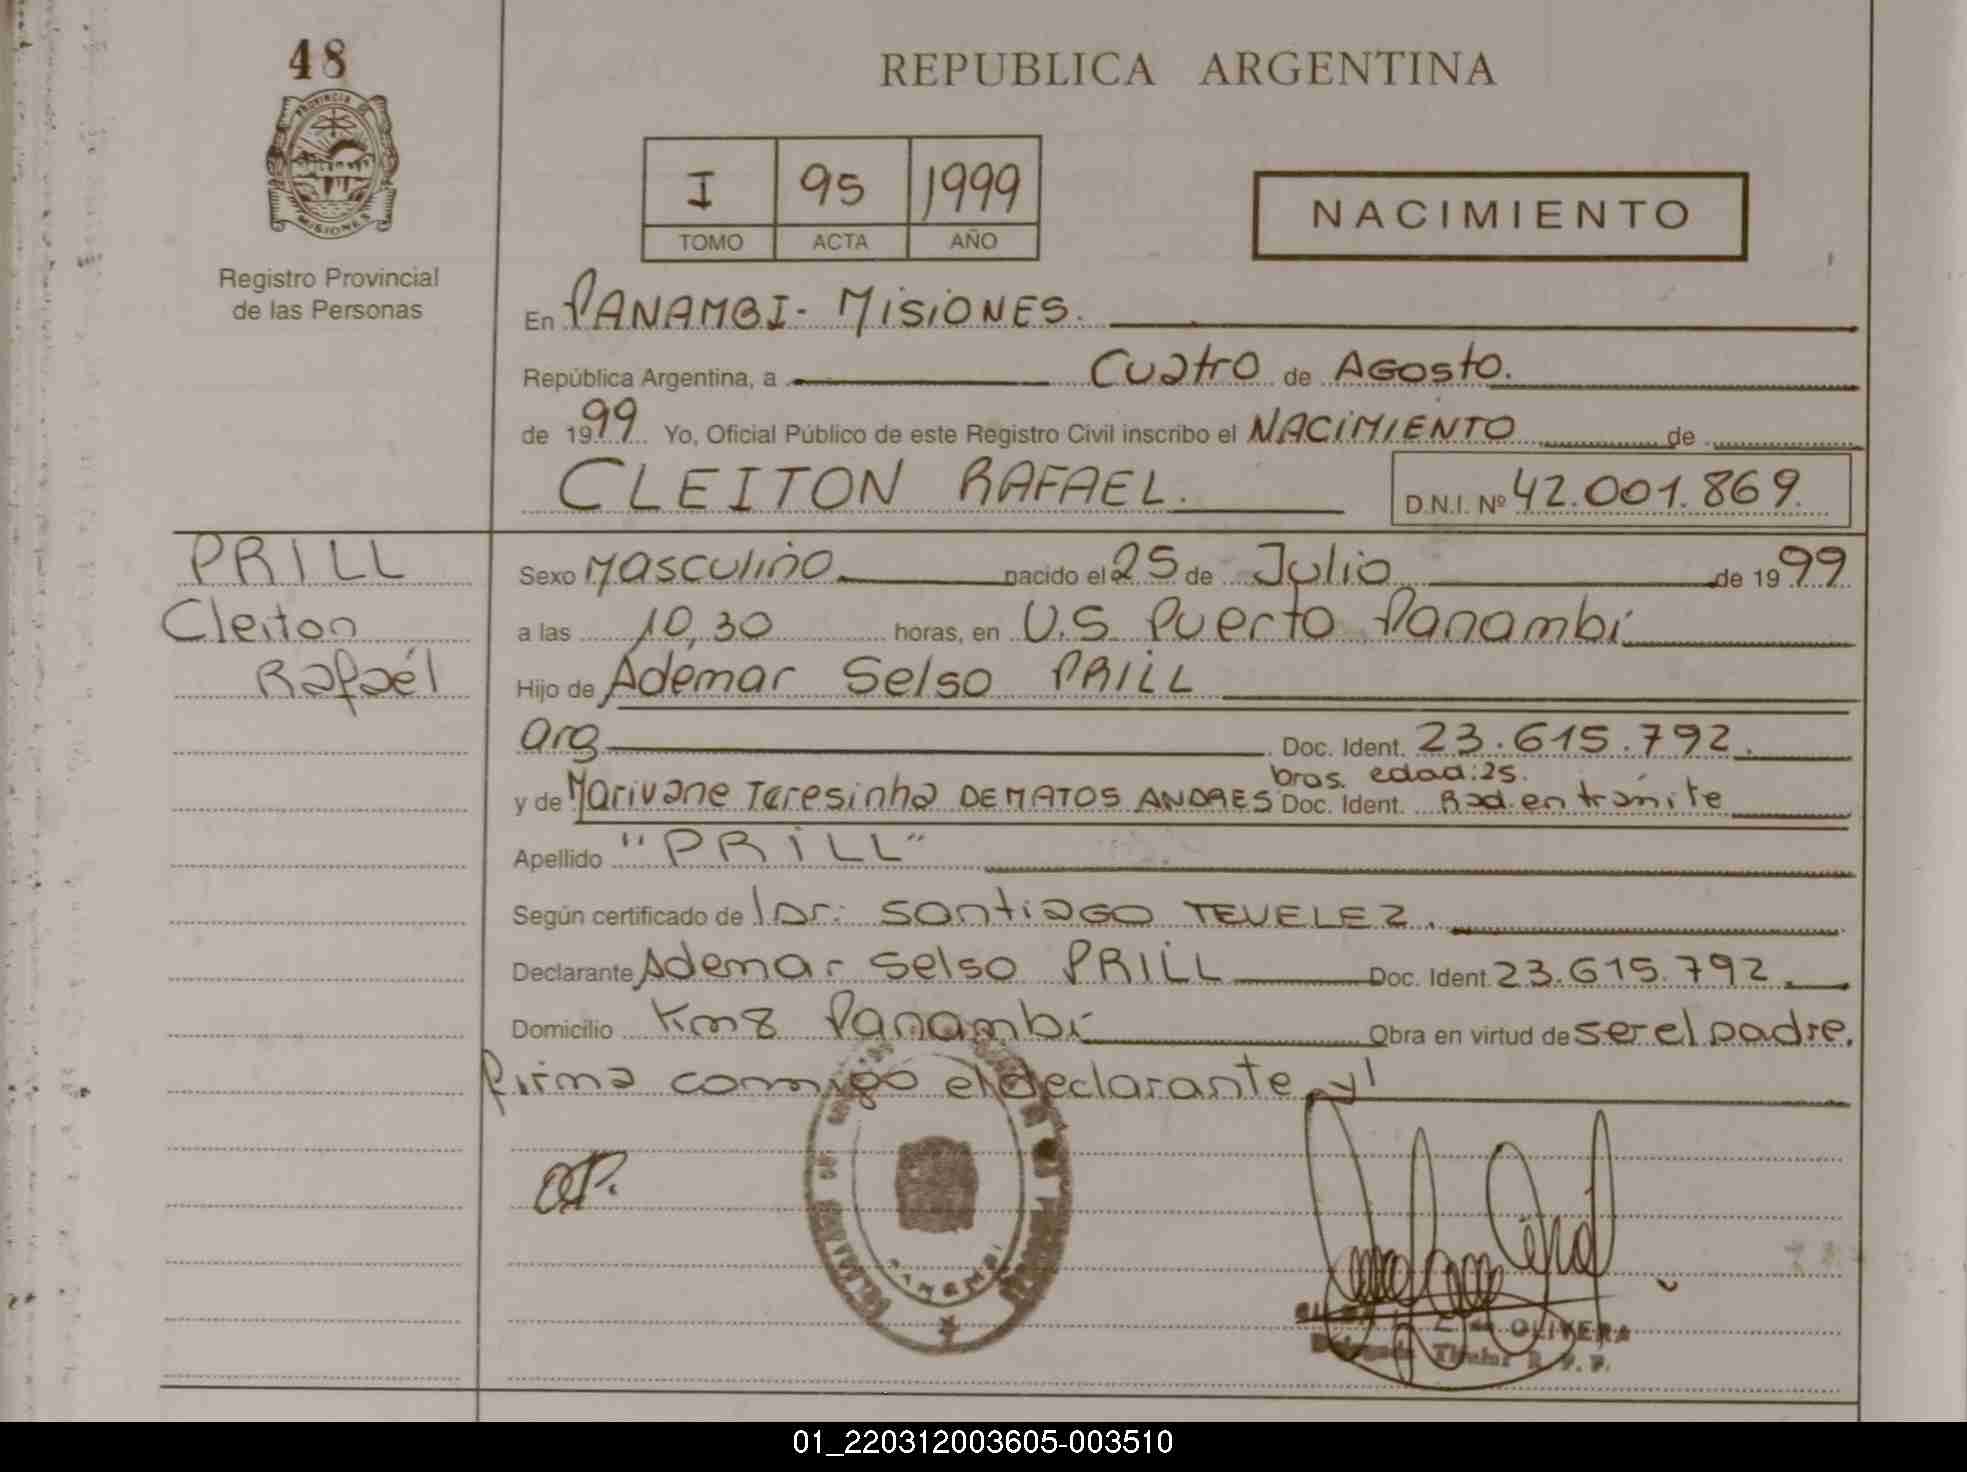 48
PROVINCIA DE
MISIONES
Registro Provincial
de las Personas
REPUBLICA ARGENTINA
I 95 1999
TOMO ACTA AÑO
NACIMIENTO
En PANAMBI- MISIONES.
República Argentina, a Cuatro de Agosto.
de 1999 Yo, Oficial Público de este Registro Civil inscribo el NACIMIENTO de
CLEITON RAFAEL. D.N.I. Nº 42.001.869.
PRILL
Cleiton
Rafaél
Sexo Masculino nacido el 25 de Julio de 1999
a las 10,30 horas, en U.S. Puerto Panambí
Hijo de Ademar Selso PRILL
arg Doc. Ident. 23.615.792.
bras. edad: 25.
y de Marivane Teresinha DE MATOS ANDRES Doc. Ident. Rad. en trámite
Apellido "PRILL"
Según certificado de Dr: Santiago TEVELEZ.
Declarante Ademar Selso PRILL Doc. Ident. 23.615.792.
Domicilio Km8 Panambí Obra en virtud de ser el padre.
firma conmigo el declarante
OLIVERA
Delegada Titular R. P. P.
01_220312003605-003510